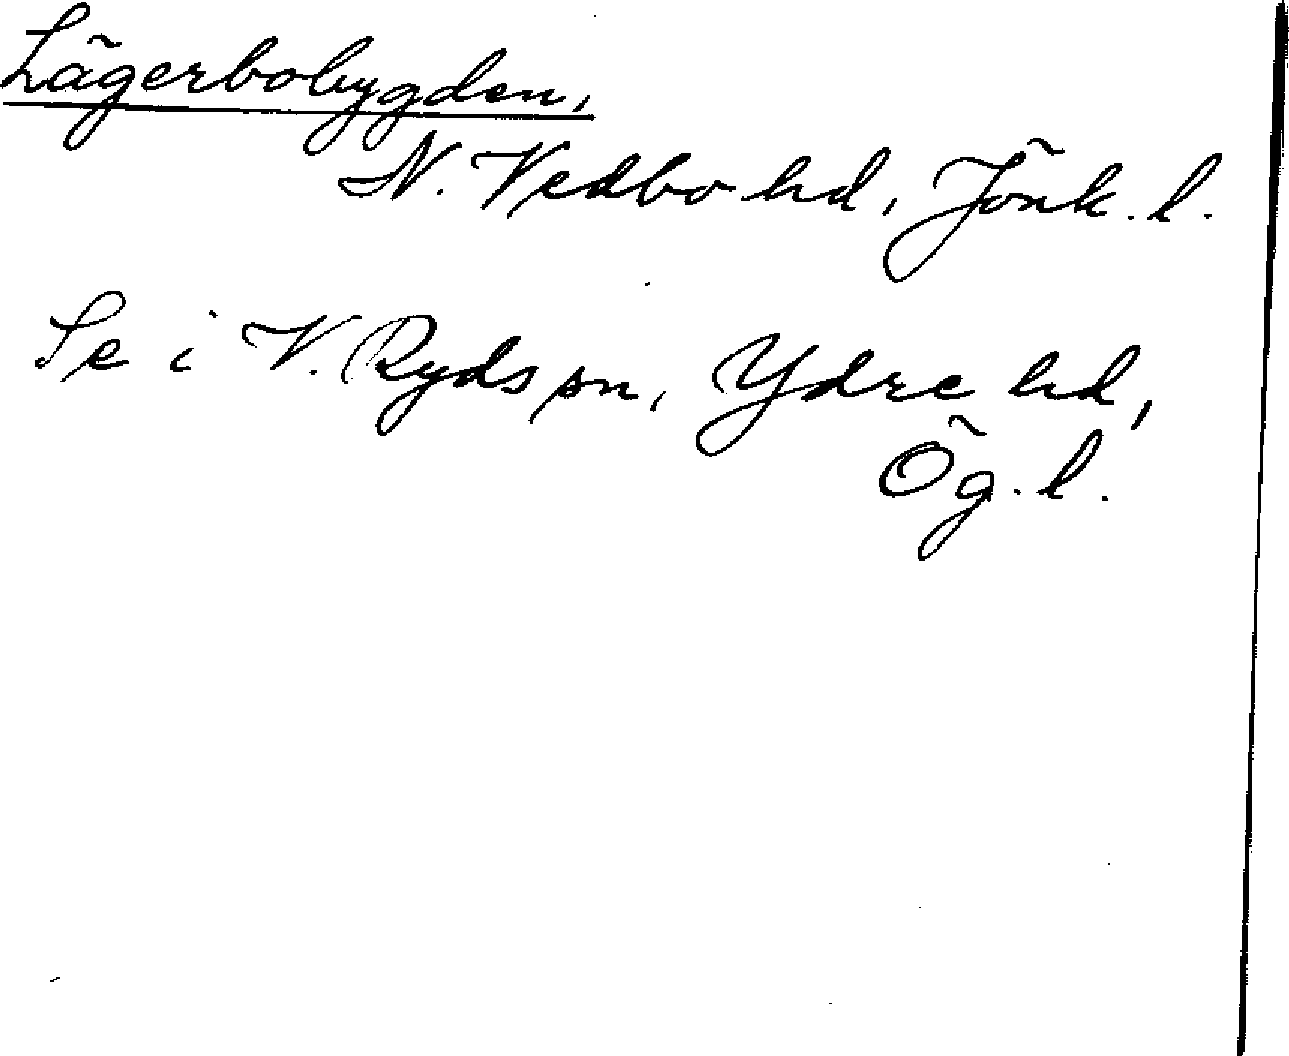 Lägerbobygden,
N. Vedbo hd, Jönk. l.
Se i V. Ryds sn, Ydre hd,
Ög. l.